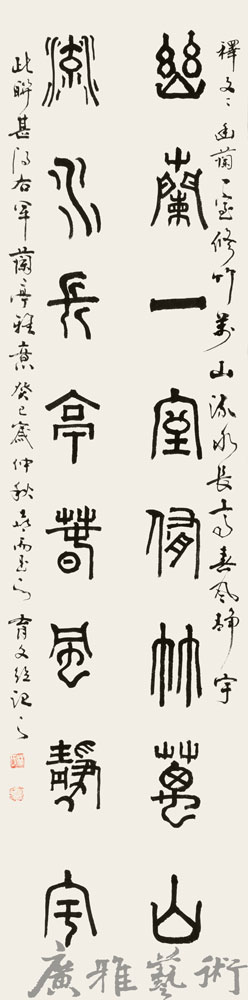 釋文：幽蘭一室修竹萬山流水長亭春風靜宇
幽蘭一室脩竹萬山
流水長亭春風靜宇
此聯甚得右軍蘭亭雅意癸巳歲仲秋 育文 記之
廣雅藝術